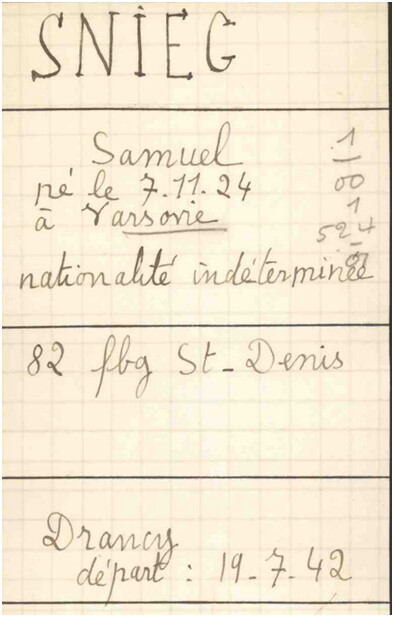 SNIEG
Samuel
né le 7.11.24
à Varsovie
nationalité indéterminée
1
00
1
524
82 fbg St-Denis
Drancy
départ : 19-7-42